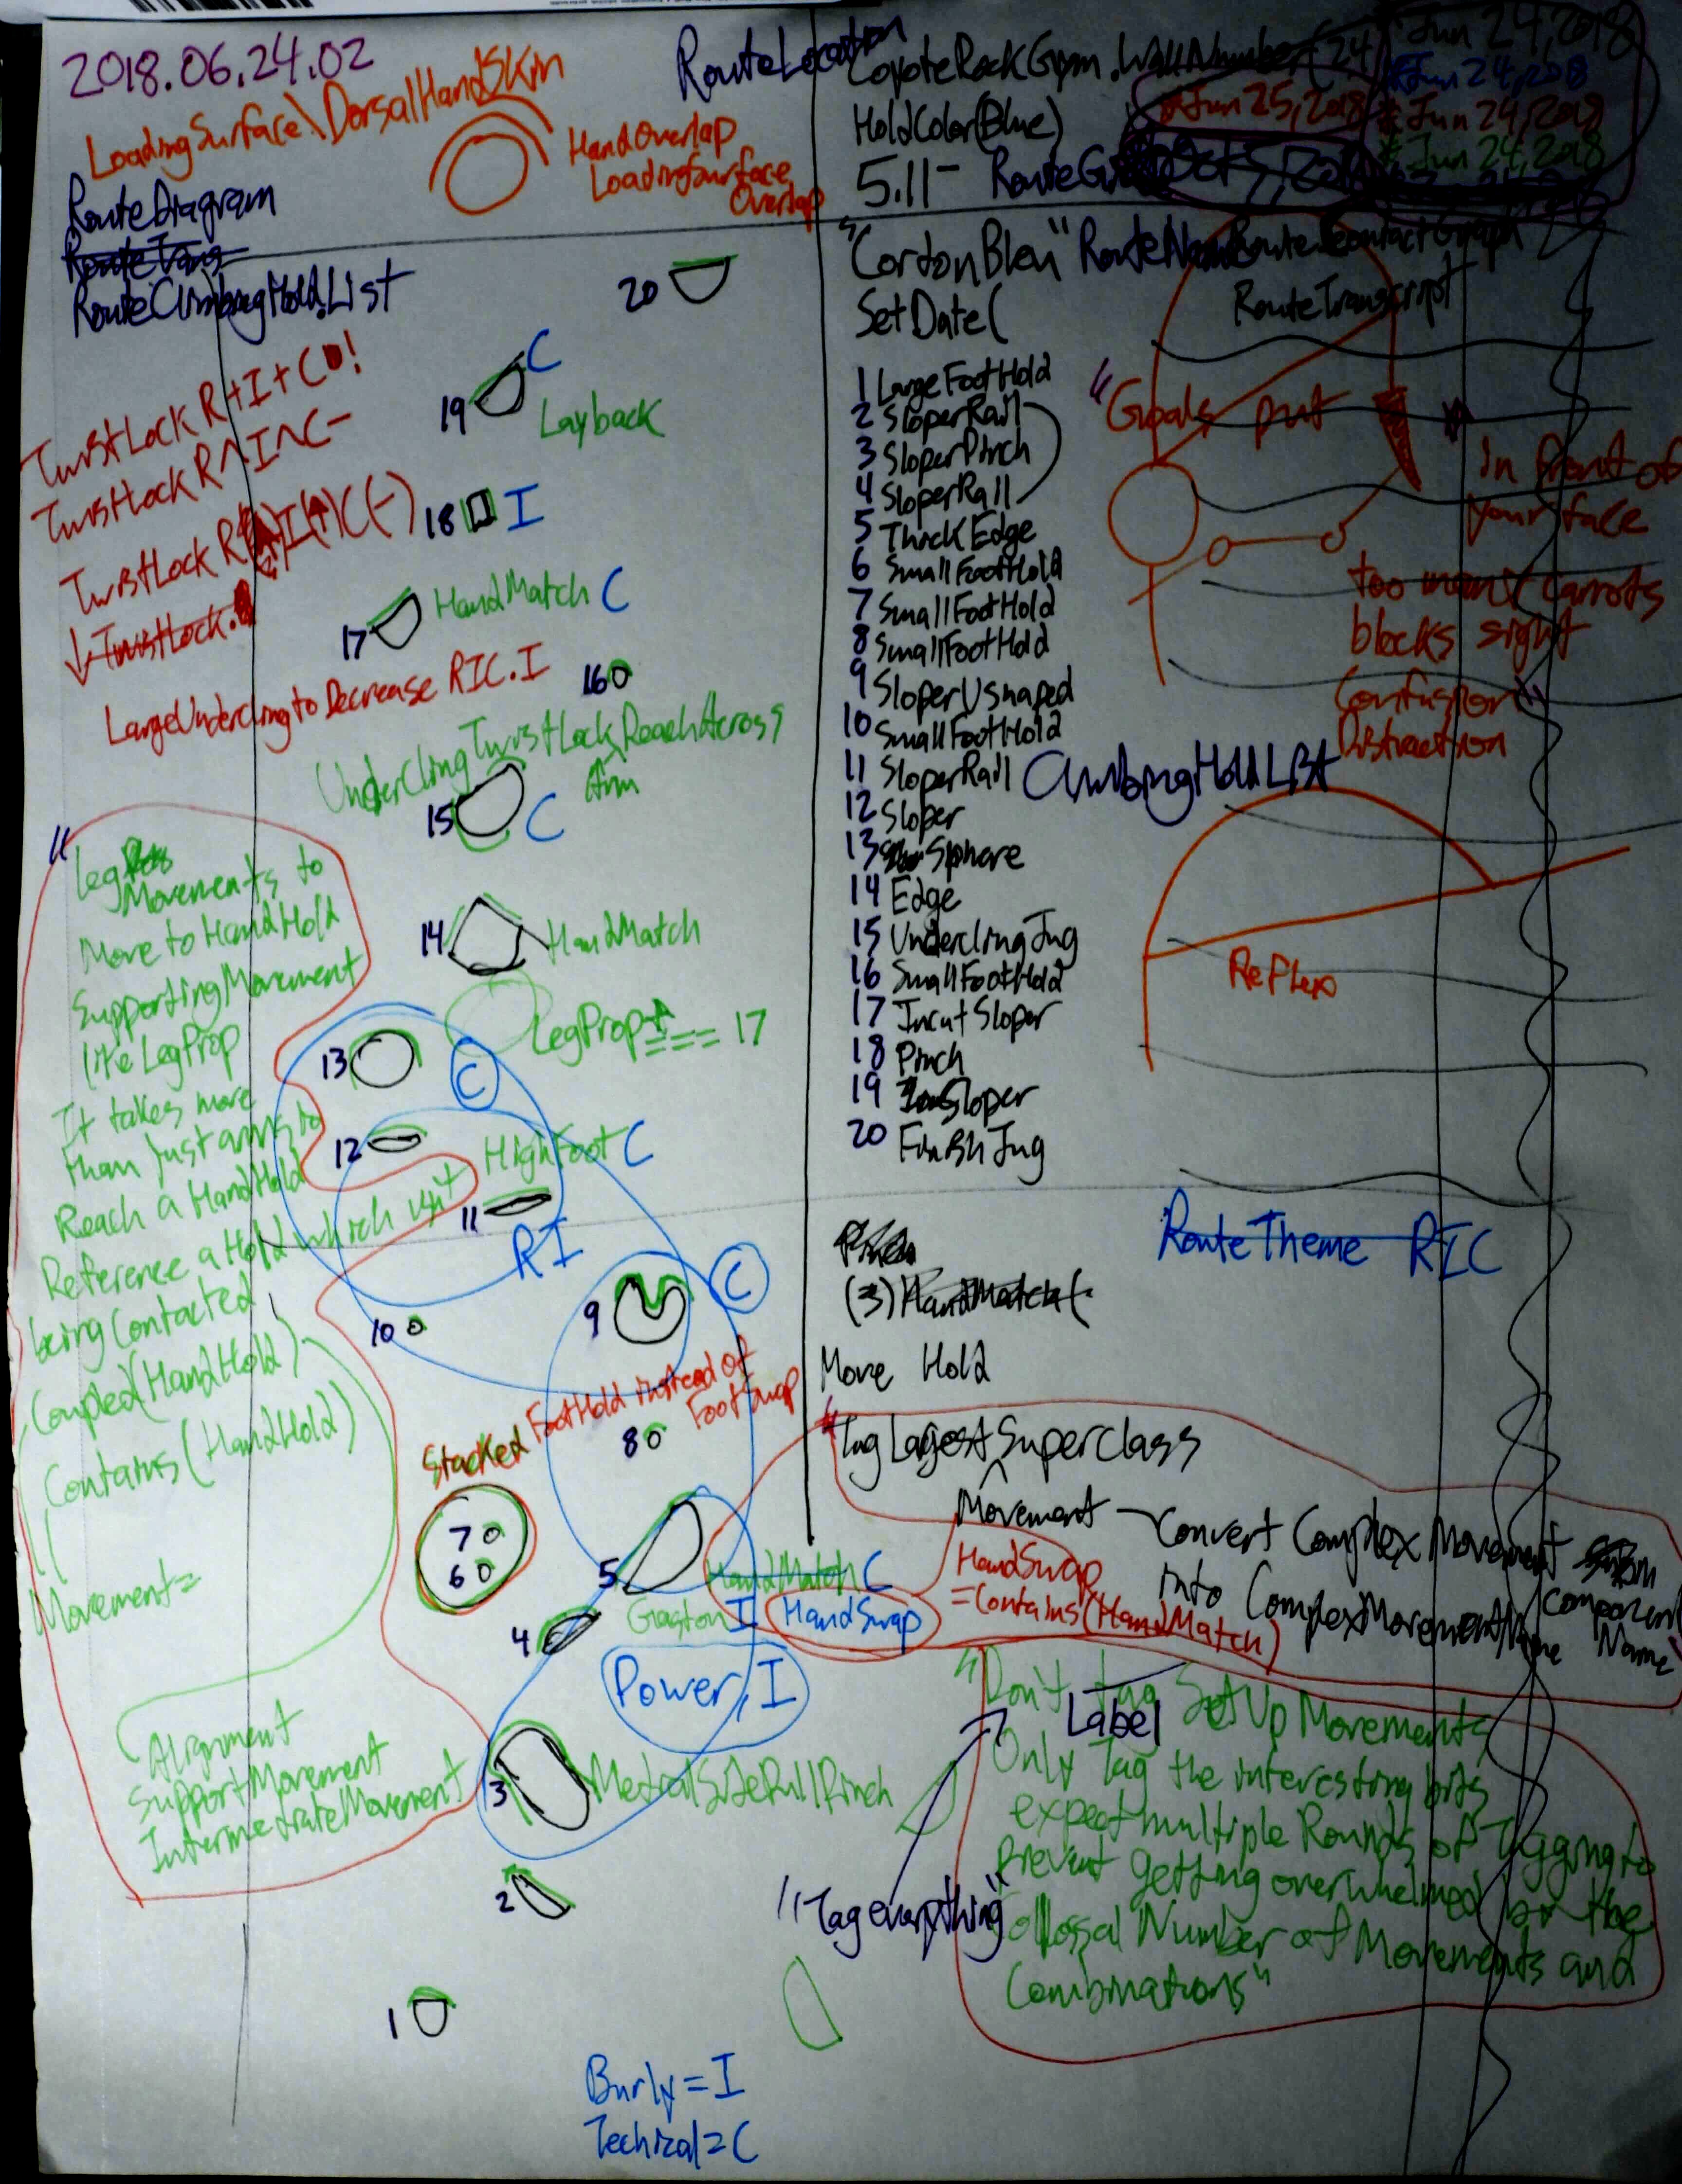 2018.06.24.02
LoadingSurface\DorsalHandSkin
HandOverlap
LoadingSurface
Overlap
RouteDiagram
RouteClimbingHold.List
RouteLocation
CoyoteRockGym.WallNumber(24)
HoldColor(Blue)
5.11-
Jun 24, 2018
*Jun 24, 2018
*Jun 25, 2018
*Jun 24, 2018
*Jun 24, 2018
"CordonBleu" RouteName
RouteTranscript
SetDate(
1 LargeFootHold
2 SloperRail
3 SloperPinch
4 SloperRail
5 ThickEdge
6 SmallFootHold
7 SmallFootHold
8 SmallFootHold
9 SloperUshaped
10 SmallFootHold
11 SloperRail
ClimbingHoldList
12 Sloper
13 Sphere
14 Edge
15 UnderclingJug
16 SmallFootHold
17 IncutSloper
18 Pinch
19 Sloper
20 FinishJug
"Goals put
in front of
your face
too many carrots
blocks sight
Confusion"
Distraction
Reflex
RouteTheme RIC
(3) HandMatch(
Move Hold
20
19 C
Layback
18 I
17 HandMatch C
16
UnderclingTwistLockReachAcross
Arm
15 C
14 HandMatch
LegProp
=== 17
13 C
12
HighFoot C
11
RI
10
9 C
Stacked FootHold instead of
FootSwap
8
7
6
5 HandMatch C
Gaston I HandSwap
4
Power, I
3 MedialSidePullPinch
2
1
TwistLock R+I+C
TwistLock R^I^C-
TwistLock
TwistLock
LargeUndercling to Decrease RIC.I
"Leg
Movements to
Move to HandHold
SupportingMovement
like LegProp
It takes more
than just arms to
Reach a HandHold
Reference a Hold which isn't
being Contacted
Coupled(HandHold)
Contains(HandHold)
Movement=
Alignment
SupportMovement
IntermediateMovement
Tag Largest Superclass
Movement
Convert Complex Movement
into ComplexMovementName
Component
Name
HandSwap
=Contains(HandMatch)
"Don't tag SetUp Movements
Label
Only Tag the interesting bits
expect multiple Rounds of Tagging to
Prevent getting overwhelmed by the
Collossal Number of Movements and
Combinations"
"Tag everything"
Burly=I
Techical=C